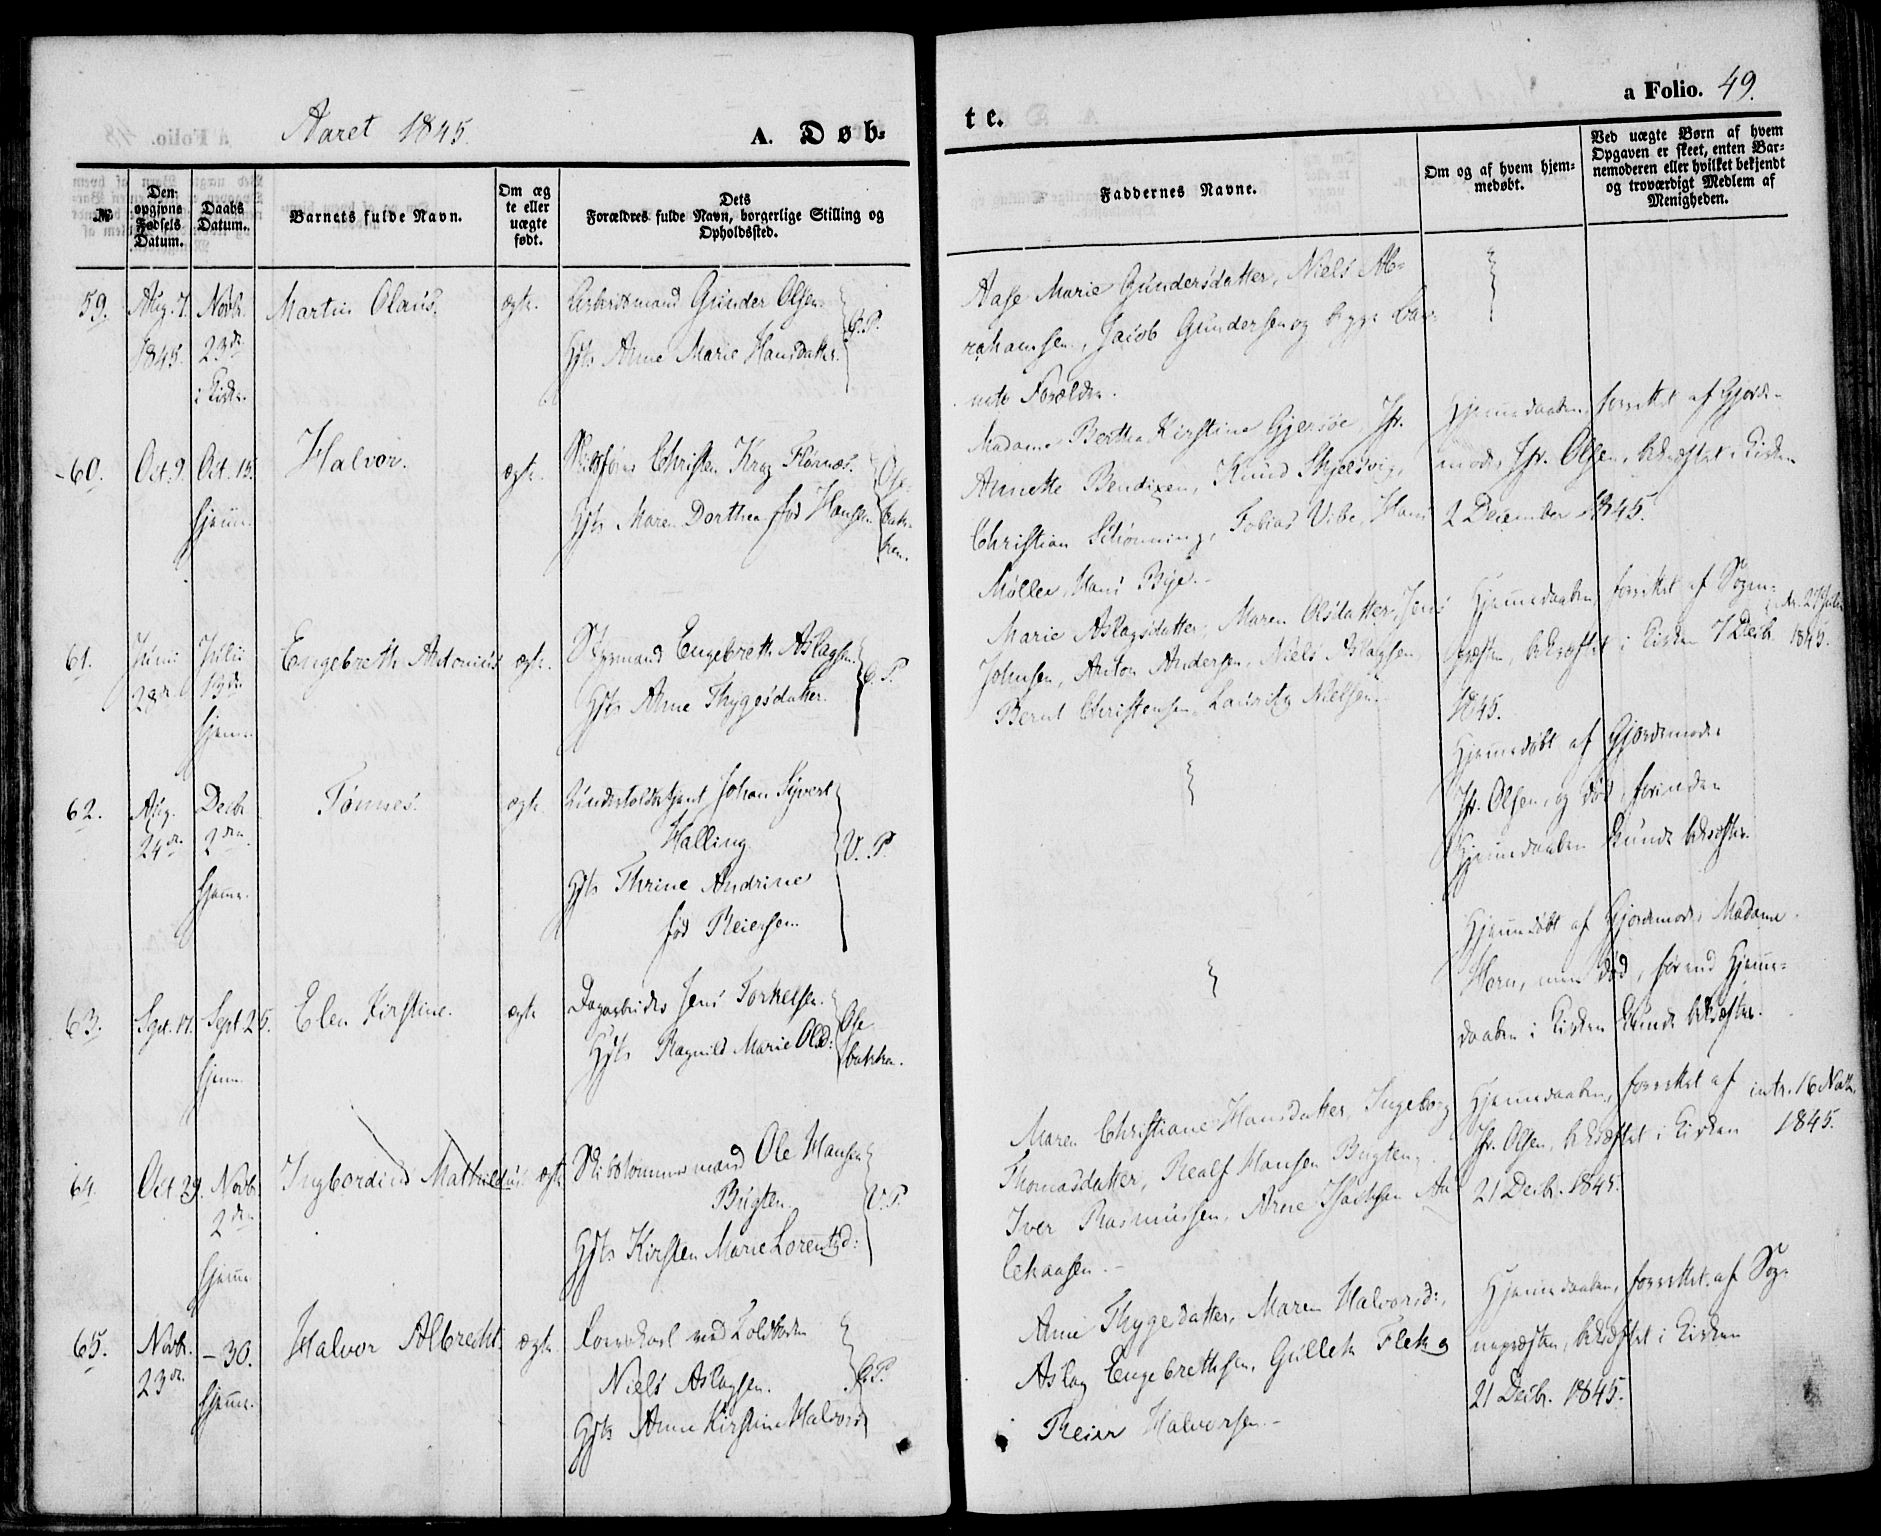 Aaret 1845.
A. Døb-
te.
a Folio. 49.
№
Den opgivne Fødsels Datum.
Daabs Datum.
Barnets fulde Navn.
Om ægte eller uægte født.
Dets
Forældres fulde Navn, borgerlige Stilling og
Opholdssted.
Faddernes Navne.
Om og af hvem hjem-
medøbt.
Ved uægte Børn af hvem
Opgaven er skeet, enten Bar-
nemoderen eller hvilket bekjendt
og troværdigt Medlem af
Menigheden.
59.
Aug. 7.
1845.
Novbr.
23de
i Kirken.
Martin Olaus.
ægte.
Arbeidsmand Gunder Olsen
Hst Anne Marie Hansdatter.
Aase Marie Gundersdatter, Niels Ab-
rahamsen, Jacob Gundersen og begge Bar-
nets Forældre.
60.
Oct. 9.
Oct. 15.
hjemme.
Halvor.
ægte.
Christen Krog Flørnæs.
Maren Dorthea fød Hansen
Ose-
bak-
ken.
Madame Bertha Kirstine Gjersøe, Jfr.
Annette Bendixen, Knud Skjelsvig,
Christian Schønning, Tobias Vibe, Hans
Møller, Hans Bye.
Hjemmedaaben, forrettet af Gjorde-
moder Jfr. Olsen, bekræftet i Kirken
2 December 1845.
61.
Juni
28de
Julii
13de
hjemme
Engebreth Antonius
ægte.
Styrmand Engebreth Aslagsen
Anne Thygesdatter.
Marie Aslagsdatter, Maren Olsdatter, Jens
Johnsen, Anton Andersen, Niels Aslagsen,
Bernt Christensen, Lauritz Nielsen.
Hjemmedaaben, forrettet af Sogne-
præsten, bekræftet i Kirken 7 Decbr.
1845.
1845.
62.
Aug.
24de
Decbr.
2den
hjemme.
Tønnes.
ægte.
Undertoldbetjent Johan Sivert
Halling
Thrine Andrine
fød Reiersen.
V. P.
Hjemmedøbt af Gjordemoder
Jfr. Olsen, og død, forinden
Hjemmedaaben kunde bekræftes.
63.
Sept. 17.
Sept 25.
hjem.
Elen Kirstine.
ægte
Dagarbeider Jens Torkelsen.
Ragnild Marie Olsd:
Ose-
bakken.
Hjemmedøbt af Gjordemoder Madame
Horn, men død, førend Hjemme-
daaben i Kirken kunde bekræftes.
64.
Oct 29.
Novbr.
2den
hjemme
Ingbordine Mathilde
ægte
Skibstømmermand Ole Hansen
Bugten
Kirsten Marie Lorentzd:
V. P.
Maren Christiane Hansdatter, Ingeborg
Thomasdatter, Realf Hansen Bugten,
Iver Rasmussen, Arne Isachsen
Hjemmedaaben, forrettet af
Jfr. Olsen, bekræftet i Kirken
21 Decbr. 1845.
intr. 16 Novbr.
1845.
65.
Novbr.
23de
- 30.
hjemme.
Halvor Albrecht.
ægte.
ved Toldboden
Niels Aslagsen.
Anne Kirstine Halvorsd
Anne Thygedatter, Maren Halvorsd:,
Aslag Engebrethsen, Gulleik Flek og
Reier Halvorsen.
Hjemmedaaben, forrettet af Sog-
nepræsten, bekræftet i Kirken
21 Decbr. 1845.